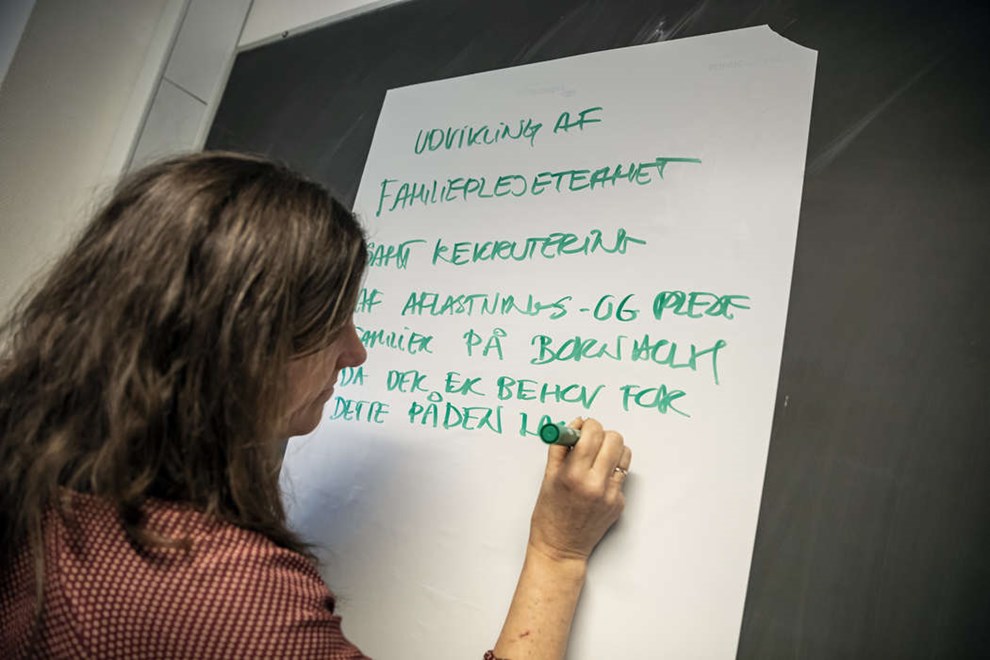 UDVIKLING AF
FAMILIEPLEJETEAMET
SAMT REKRUTERING
AF AFLASTNINGS-OG PLEJE
FAMILIER PÅ BORNHOLM
DA DER ER BEHOV FOR
DETTE PÅ DEN